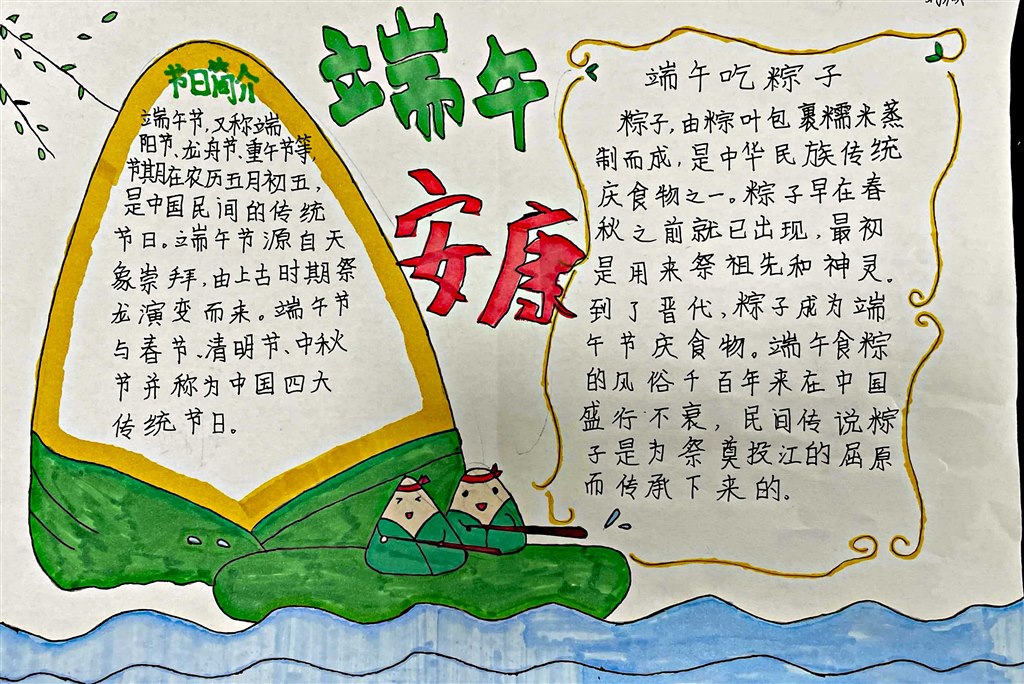 端午
安康
节日简介
端午节,又称端
阳节、龙舟节、重午节等,
节期在农历五月初五,
是中国民间的传统
节日。端午节源自天
象崇拜,由上古时期祭
龙演变而来。端午节
与春节、清明节、中秋
节并称为中国四大
传统节日。
端午吃粽子
粽子,由粽叶包裹糯米蒸
制而成,是中华民族传统
庆食物之一。粽子早在春
秋之前就已出现,最初
是用来祭祖先和神灵。
到了晋代,粽子成为端
午节庆食物。端午食粽
的风俗千百年来在中国
盛行不衰,民间传说粽
子是为祭奠投江的屈原
而传承下来的。